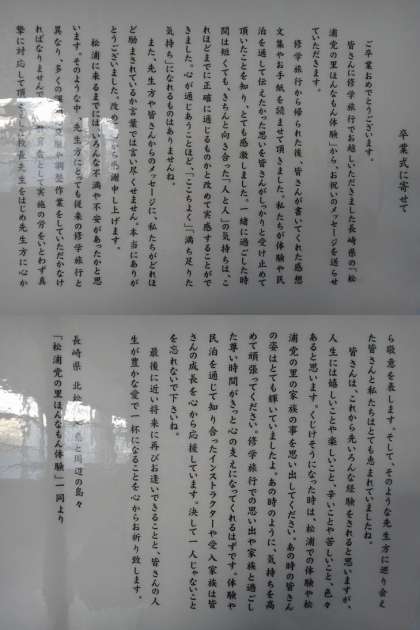 卒業式に寄せて
ご卒業おめでとうございます。
皆さんに修学旅行でお越しいただきました長崎県の「松
浦党の里ほんなもん体験」から、お祝いのメッセージを送らせ
ていただきます。
修学旅行から帰られた後、皆さんが書いてくれた感想
文集やお手紙を読ませて頂きました。私たちが体験や民
泊を通して伝えたかった思いを皆さんがしっかりと受け止めて
頂いたことを知り、とても感激しました。一緒に過ごした時
間は短くても、きちんと向き合った「人と人」の気持ちは、こ
れほどまでに正確に通じるものかと改めて実感することがで
きました。心が通じあうことほど、「ここちよく」「満ち足りた
気持ち」になれるものはありませんね。
また、先生方や皆さんからのメッセージに、私たちがどれほ
ど励まされているか言葉では言い尽くせません。本当にありが
とうございました。改めて心から感謝申し上げます。
松浦に来るまでにはいろんな不満や不安があったかと思
います。そのような中、先生方にとっても従来の修学旅行と
異なり、多くの調整作業をしていただかなけ
ればなりませんで して実施の労をいとわず真
摯に対応して頂きました校長先生をはじめ先生方に心か
ら敬意を表します。そして、そのような先生方に巡り会え
た皆さんと私たちはとても恵まれていましたね。
皆さんは、これから先いろんな経験をされると思いますが、
人生には嬉しいことや楽しいこと、辛いことや苦しいこと、色々
あると思います。くじけそうになった時は、松浦での体験や松
浦党の里の家族の事を思い出してください。あの時の皆さん
の姿はとても輝いていましたよ。あの時のように、気持ちを高
めて頑張ってください。修学旅行での思い出や家族と過ごし
た尊い時間がきっと心の支えになってくれるはずです。体験や
民泊を通じて知り合ったインストラクターや受入家族は皆
さんの成長を心から応援しています。決して一人じゃないこと
を忘れないで下さいね。
最後に近い将来に再びお逢いできることと、皆さんの人
生が豊かな愛で一杯になることを心からお祈り致します。
長崎県 北松 と周辺の島々
「松浦党の里ほんなもん体験」一同より